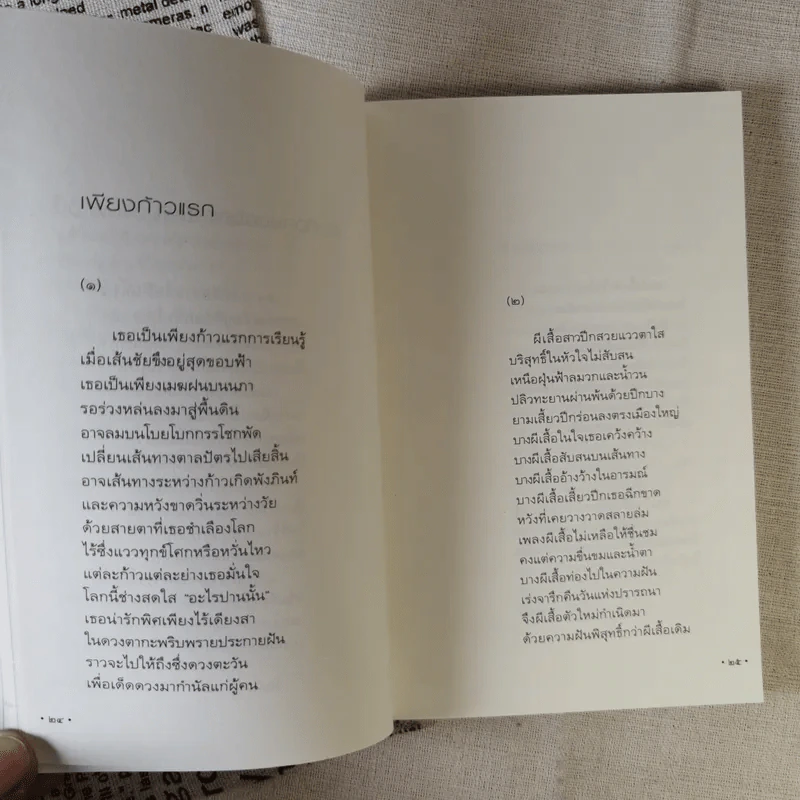 metal de
meras. n
emo
was
เพียงก้าวแรก
(๑)
เธอเป็นเพียงก้าวแรกการเรียนรู้
เมื่อเส้นชัยซึ่งอยู่สุดขอบฟ้า
เธอเป็นเพียงเมฆฝนบนนภา
รอร่วงหล่นลงมาสู่พื้นดิน
อาจลมบนโบยโบกกรรโชกพัด
เปลี่ยนเส้นทางตาลปัตรไปเสียสิ้น
อาจเส้นทางระหว่างก้าวเกิดพังภินท์
และความหวังขาดวิ่นระหว่างวัย
ด้วยสายตาที่เธอชำเลืองโลก
ไร้ซึ่งแววทุกข์โศกหรือหวั่นไหว
แต่ละก้าวแต่ละย่างเธอมั่นใจ
โลกนี้ช่างสดใส "อะไรปานนั้น"
เธอน่ารักพิศเพียงไร้เดียงสา
ในดวงตากะพริบพรายประกายฝัน
ราวจะไปให้ถึงซึ่งดวงตะวัน
เพื่อเด็ดดวงมากำนัลแก่ผู้คน
• ๒๔ •
(๒)
ผีเสื้อสาวปีกสวยแววตาใส
บริสุทธิ์ในหัวใจไม่สับสน
เหนือฝุ่นฟ้าลมวกและน้ำวน
ปลิวทะยานผ่านพ้นด้วยปีกบาง
ยามเสี้ยวปีกร่อนลงตรงเมืองใหญ่
บางผีเสื้อในใจเธอเคว้งคว้าง
บางผีเสื้อสับสนบนเส้นทาง
บางผีเสื้ออ้างว้างในอารมณ์
บางผีเสื้อเสี้ยวปีกเธอฉีกขาด
หวังที่เคยวางวาดสลายล่ม
เพลงผีเสื้อไม่เหลือให้ชื่นชม
คงแต่ความขื่นขมและน้ำตา
บางผีเสื้อท่องไปในความฝัน
เร่งจารึกคืนวันแห่งปรารถนา
จึงผีเสื้อตัวใหม่กำเนิดมา
ด้วยความฝันพิสุทธิ์กว่าผีเสื้อเดิม
• ๒๕ •